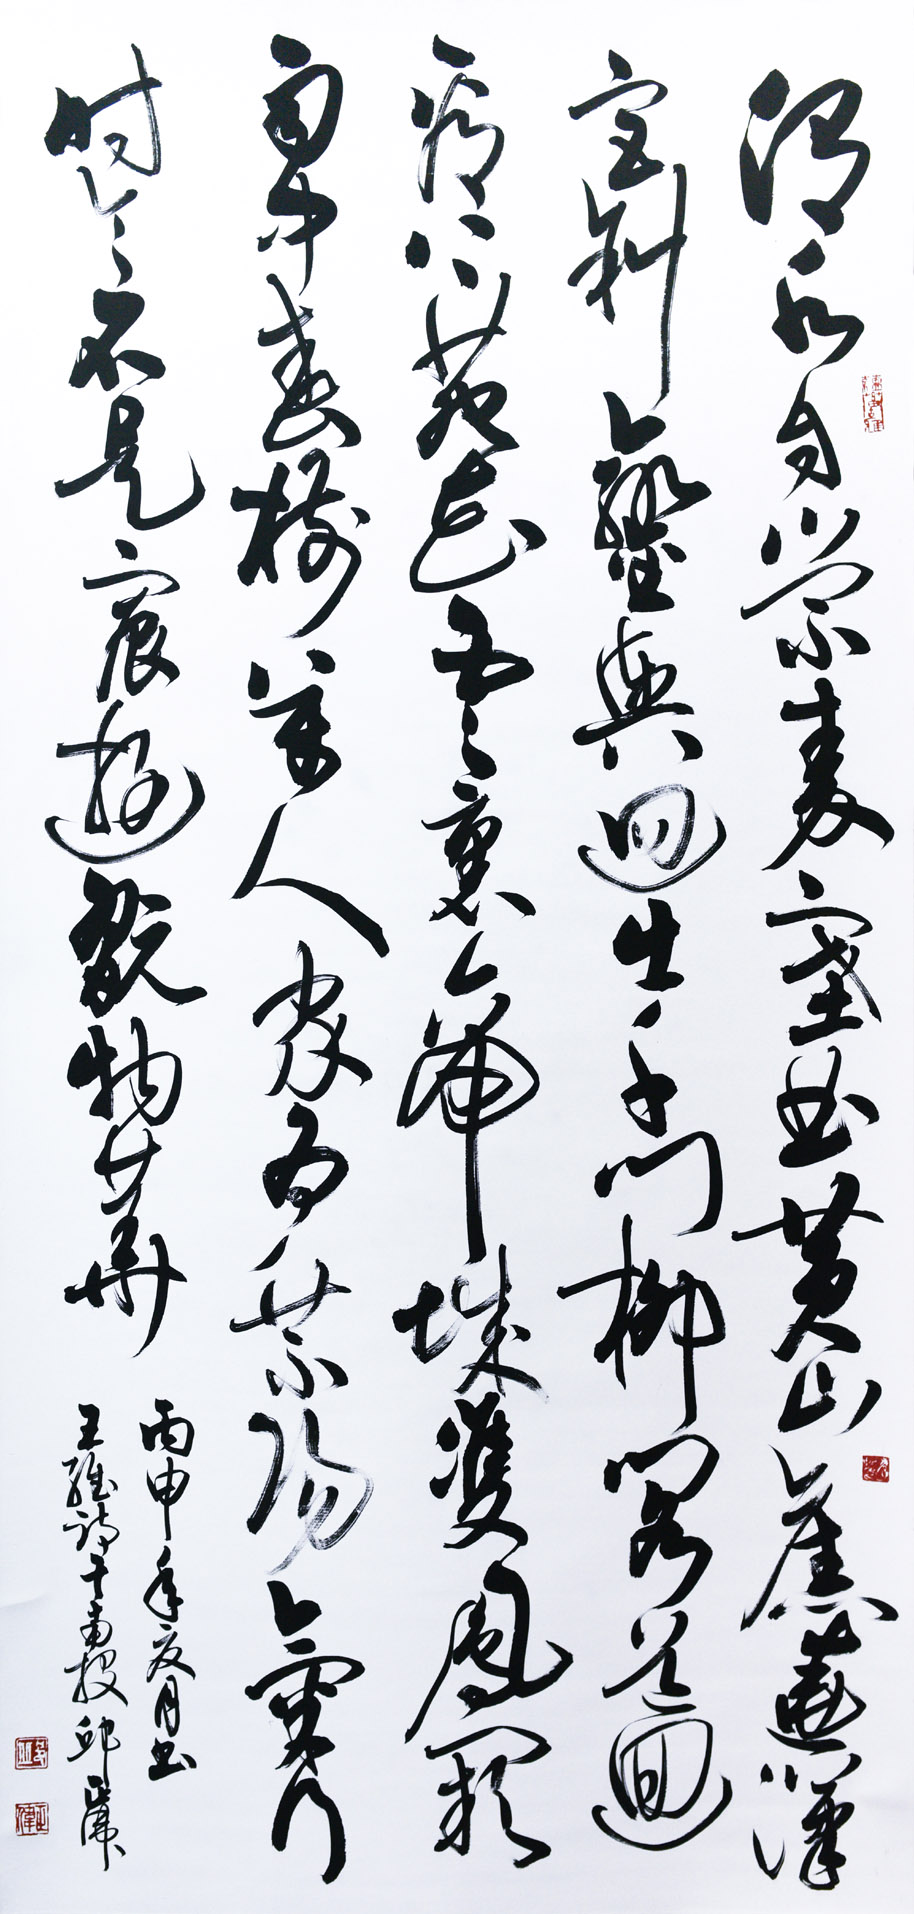 渭水自縈秦塞曲黄山舊遶漢
宮斜鑾輿迥出千門柳閣道迴
看上苑花雲裏帝城雙鳳闕
雨中春樹萬人家為乘陽氣行
时令不是宸遊翫物華
丙申年夏月书
王維詩于南投邱